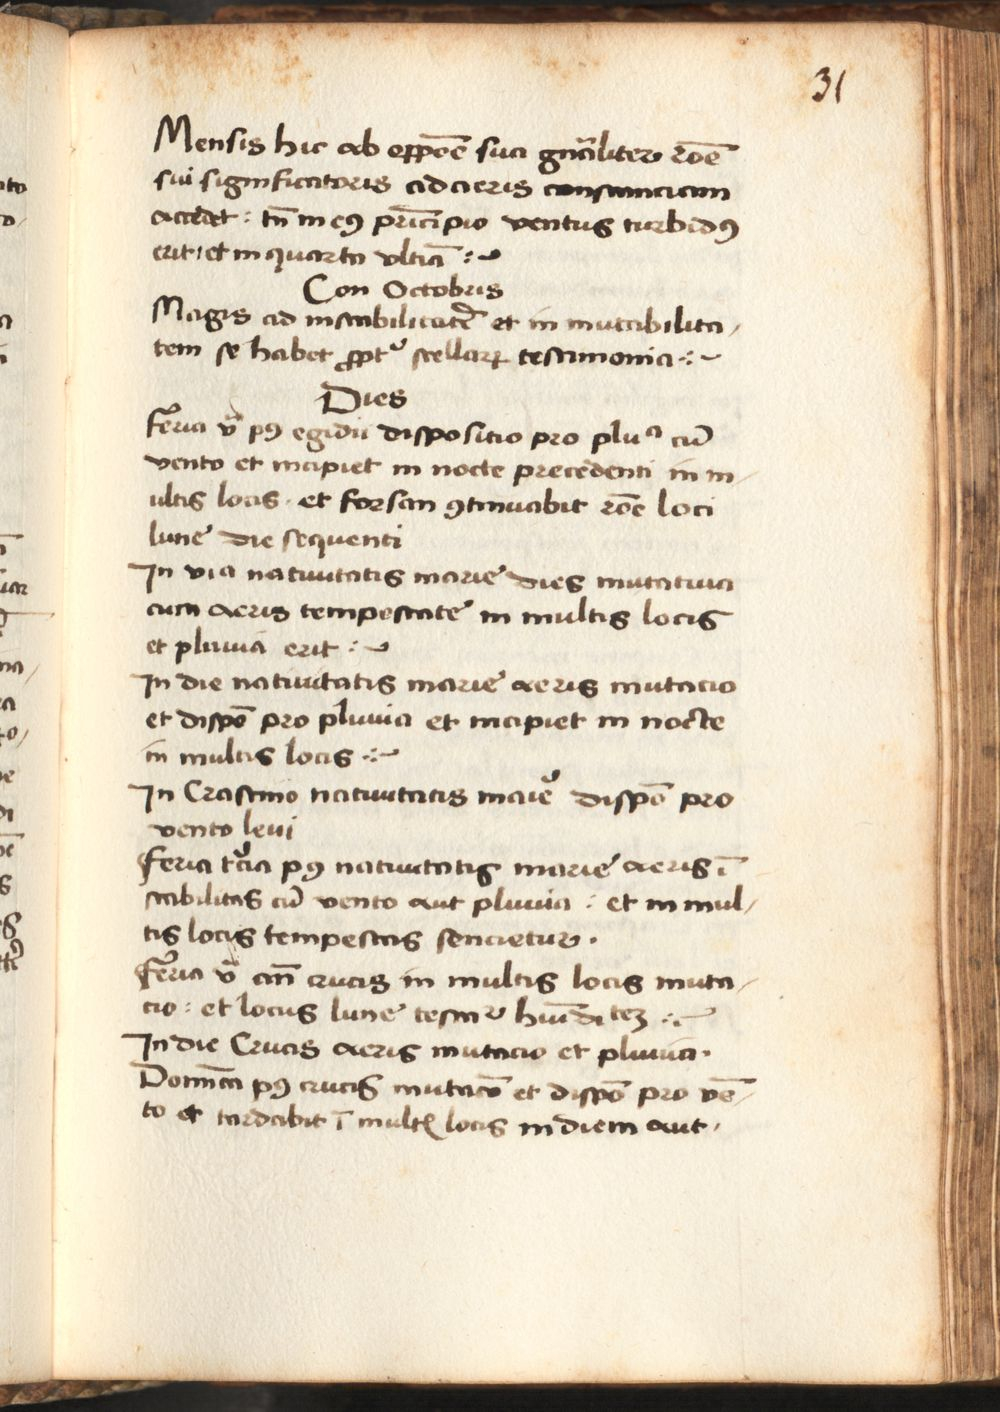 31
Mensis hic ab opp̄oe sua gn̄aliter rōe
sui significatoris ad aeris constanciam
accedet : tn̄ in eꝯ prīcipio ventus turbidꝯ
erit : et in quarta vltīa :~
Con Octobris
Magis ad instabilitatē et in mutabilita-
tem se habet ꝓpt᷑ stellarꝝ testimonia :~
Dies
feria vᵃ pꝯ egidii dispositio pro pluᵃ cū
vento et incipiet in nocte precedenti in m-
ultis locis . et forsan ꝯtinuabit rōe loci
lune die sequenti
In via natiuitatis marie dies mutatiua
cum aeris tempestate in multis locis
et pluuia erit :~
In die natiuitatis marie aeris mutacio
et dispō pro pluuia et incipiet in nocte
in multis locis :~
In Crastino natiuitatis maie᷑ dispō pro
vento leui
feria tᷓcia pꝯ natiuitatis marie aeris ī
stabilitas cū vento aut pluuia : et in mul-
tis locis tempestas sencietur .
feria vᵃ an̄ crucis in multis locis muta-
cio : et locus lune testat᷑ hūiditeꝫ :~
In die Crucis aeris mutacio et pluuia .
Domīca pꝯ crucis mutacō et dispō pro vē-
to et tardabit ī multꝭ locis in diem aut .